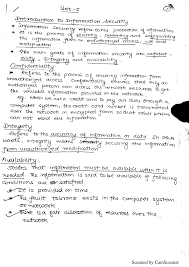 Unit - I
Introduction to Information Security
Information security refers protection of information
It is the process of securing and safeguarding
the information from unauthorized access, use and
modification
The main goals of information security are confident
iality, Integrity and availability
Confidentiality
Refers to the process of sharing information from
unauthorized access. Confidentiality ensures that only an
authorized person can access the network resources &
get the valuable information from network.
Ex: When we use credit card to pay our dues through
computer system, the credit card number is transferred
over the network in encrypted form so that other person
can not access the information.
Integrity
Refers to the accuracy of information or data. In other
words, integrity means securing the information
from unauthorized modification
Availability
States that information must be available when it is
needed. The information is said to be available if following
conditions are satisfied.
It is provided on time
The fault tolerance exists in the computer system
or network
There is a fair allocation of resources over the
network
Scanned by CamScanner